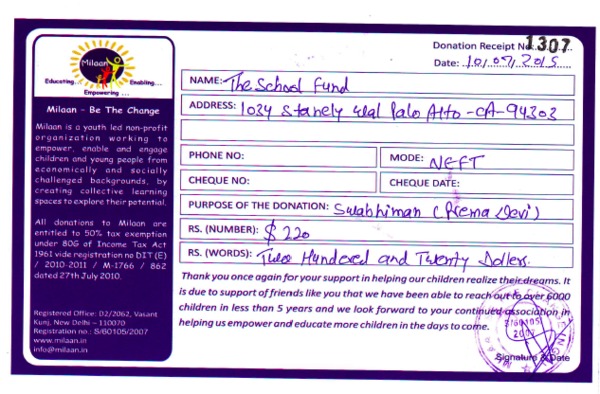 Donation Receipt No. 1307
Date: 10/07/2015
Milaan
Educating... Enabling...
Empowering ...
Milaan - Be The Change
Milaan is a youth led non-profit
organization working to
empower, enable and engage
children and young people from
economically and socially
challenged backgrounds, by
creating collective learning
spaces to explore their potential.
All donations to Milaan are
entitled to 50% tax exemption
under 80G of Income Tax Act
1961 vide registration no DIT (E)
/ 2010-2011 / M-1766 / 862
dated 27th July 2010.
Registered Office: D2/2062, Vasant
Kunj, New Delhi – 110070
Registration no.: S/60105/2007
www.milaan.in
info@milaan.in
NAME: The School Fund
ADDRESS: 1034 Stanely Palo Alto - CA - 94303
PHONE NO: MODE: NEFT
CHEQUE NO: CHEQUE DATE:
PURPOSE OF THE DONATION: Swabhiman (Prema Devi)
RS. (NUMBER): $ 220
RS. (WORDS): Two Hundered and Twenty Dollers.
Thank you once again for your support in helping our children realize their dreams. It
is due to support of friends like you that we have been able to reach out to over 6000
children in less than 5 years and we look forward to your continued association in
helping us empower and educate more children in the days to come.
S/60105
2007
Signature & Date